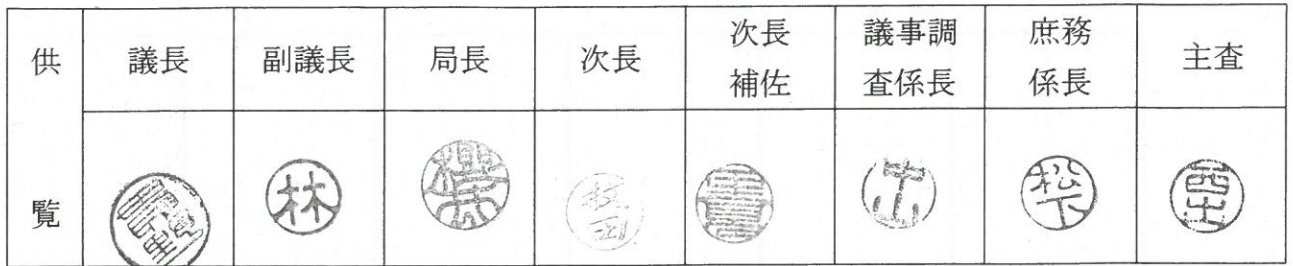 供覧
議長
副議長
局長
次長
次長補佐
議事調査係長
庶務係長
主査
林
松下